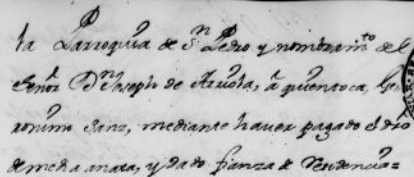 la Parroquia de Sn Pedro y nombramto del
Señor Dn Joseph de Arriola, â quien toca, Ge
ronimo Sanz, mediante haver pagado el dro
de media anata, y dado fianza de Residencia=